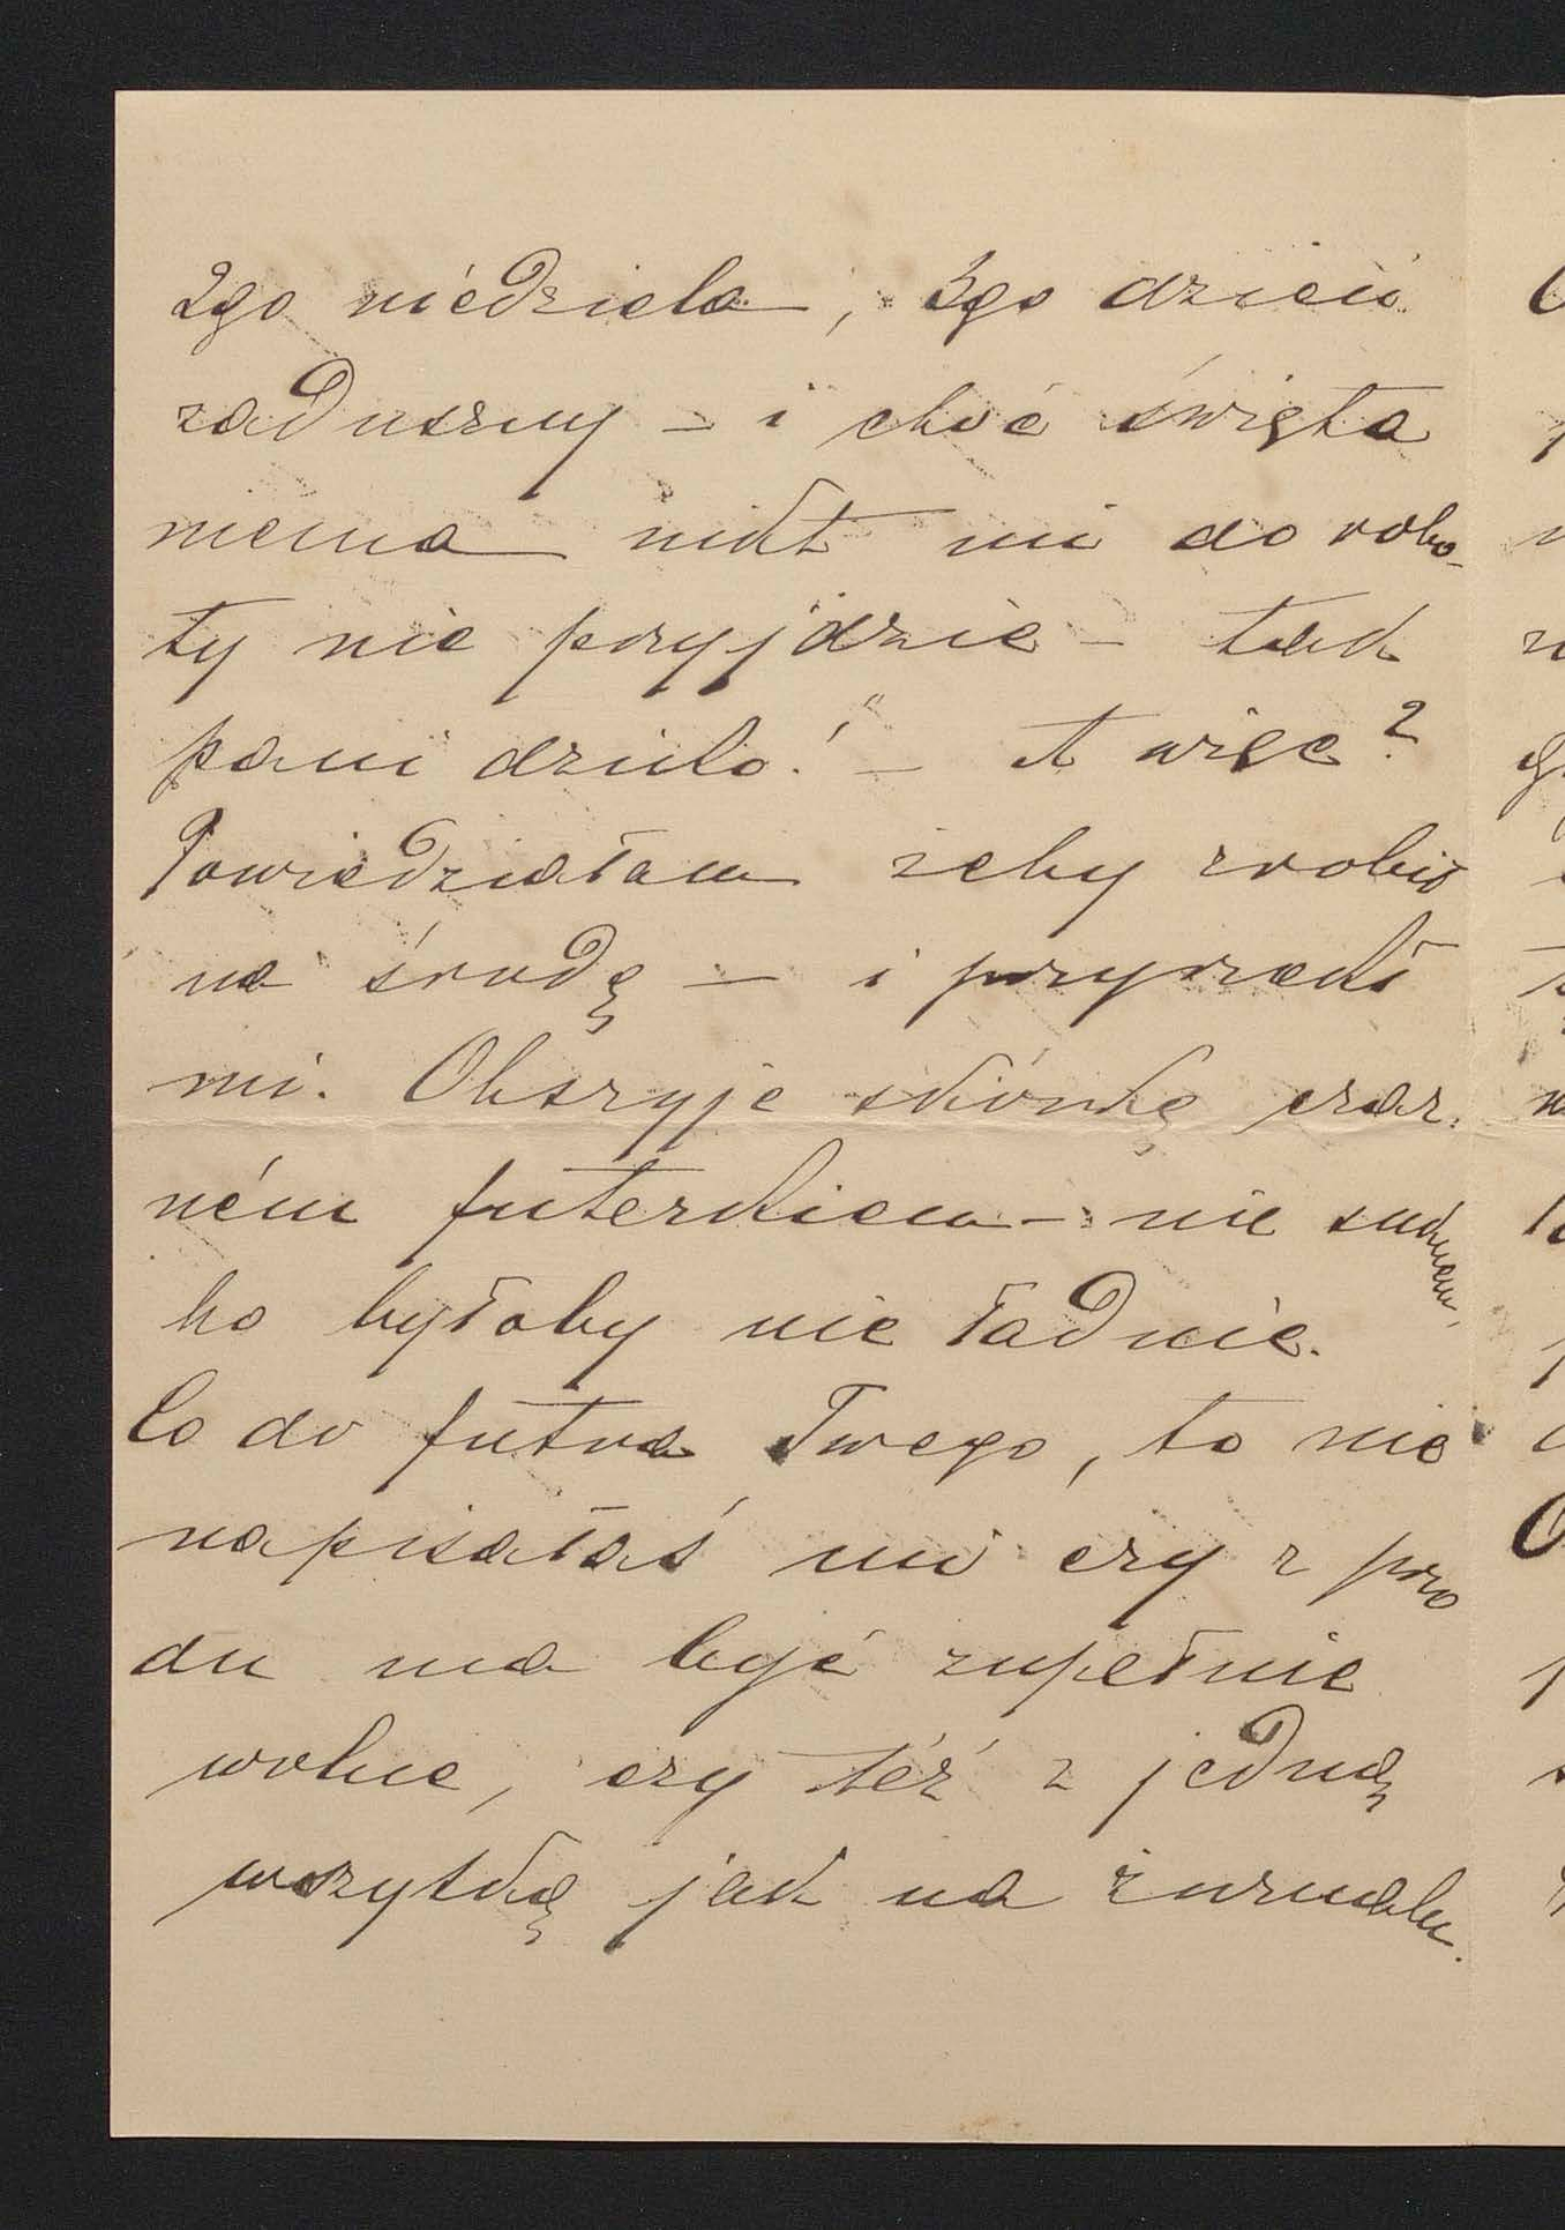 2go niedziela, 3go dzień
zaduszny – i choć święta
niema nikt mi do robo-
ty nie przyjdzie – tak
pani dzieło!" – A więc?
Powiedziałam żeby zrobił
na środę – i przyrzekł
mi. Obszyje skórkę czar.
ném futerkiem – nie suknem,
bo byłoby nie ładnie.
Co do futra Twego, to nie
napisałaś mi czy z przo
du ma być zupełnie
wolne, czy téż z jedną
wszytką jak na żurnalu.